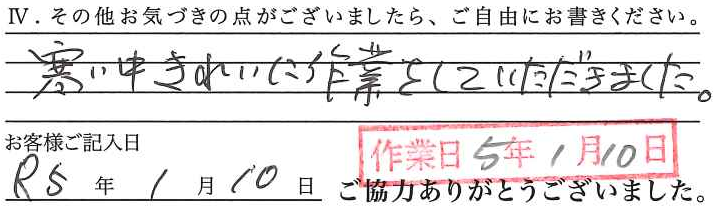 Ⅳ．その他お気づきの点がございましたら、ご自由にお書きください。
寒い中きれいに作業をしていただきました。
お客様ご記入日
作業日 5年 1月10日
R5 年 1 月 10 日 ご協力ありがとうございました。